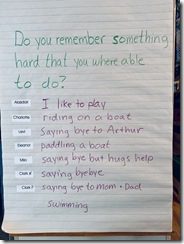 Do you remember something
hard that you where able
to do?
Alasdair I like to play
Charlotte riding on a boat
Levi saying bye to Arthur
Eleanor paddling a boat
Milo saying bye but hugs help
Clark R saying byebye
Clark T saying bye to mom + Dad
swimming